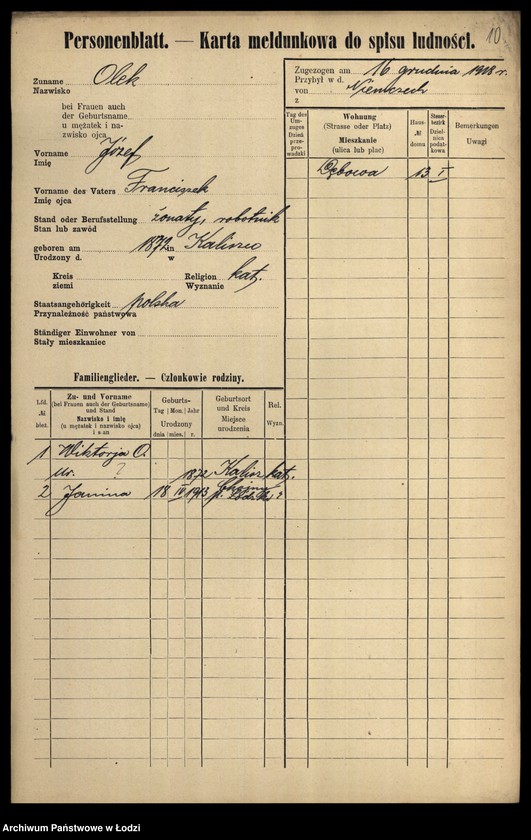 10
Personenblatt. — Karta meldunkowa do spisu ludności.
Zuname Olek
Nazwisko
bei Frauen auch
der Geburtsname
u mężatek i na-
zwisko ojca
Vorname Józef
Imię
Vorname des Vaters Franciszek
Imię ojca
Stand oder Berufsstellung żonaty, robotnik
Stan lub zawód
geboren am 1872 in Kaliszu
Urodzony d. w
Kreis Religion kat.
ziemi Wyznanie
Staatsangehörigkeit polska
Przynależność państwowa
Ständiger Einwohner von
Stały mieszkaniec
Zugezogen am 16 grudnia 1918 r.
Przybył w d.
von Niemczech
z
Tag des Um-zuges
Dzień przeprowadzki
Wohnung
(Strasse oder Platz)
Mieszkanie
(ulica lub plac)
Haus-
№
domu
Steuer-
bezirk
Dziel-
nica
podat-
kowa
Bemerkungen
Uwagi
Dębowa 13 I
Familienglieder. — Członkowie rodziny.
Lfd.
№
bież.
Zu- und Vorname
(bei Frauen auch der Geburtsname)
und Stand
Nazwisko i imię
(u mężatek i nazwisko ojca)
i stan
Geburts-
Tag | Mon. | Jahr
Urodzony
dnia | mies. | r.
Geburtsort
und Kreis
Miejsce
urodzenia
Rel.
Wyzn.
1 Wiktorja O.
ur. ? 1872 Kalisz kat.
2 Janina 18 IV 1913
Archiwum Państwowe w Łodzi